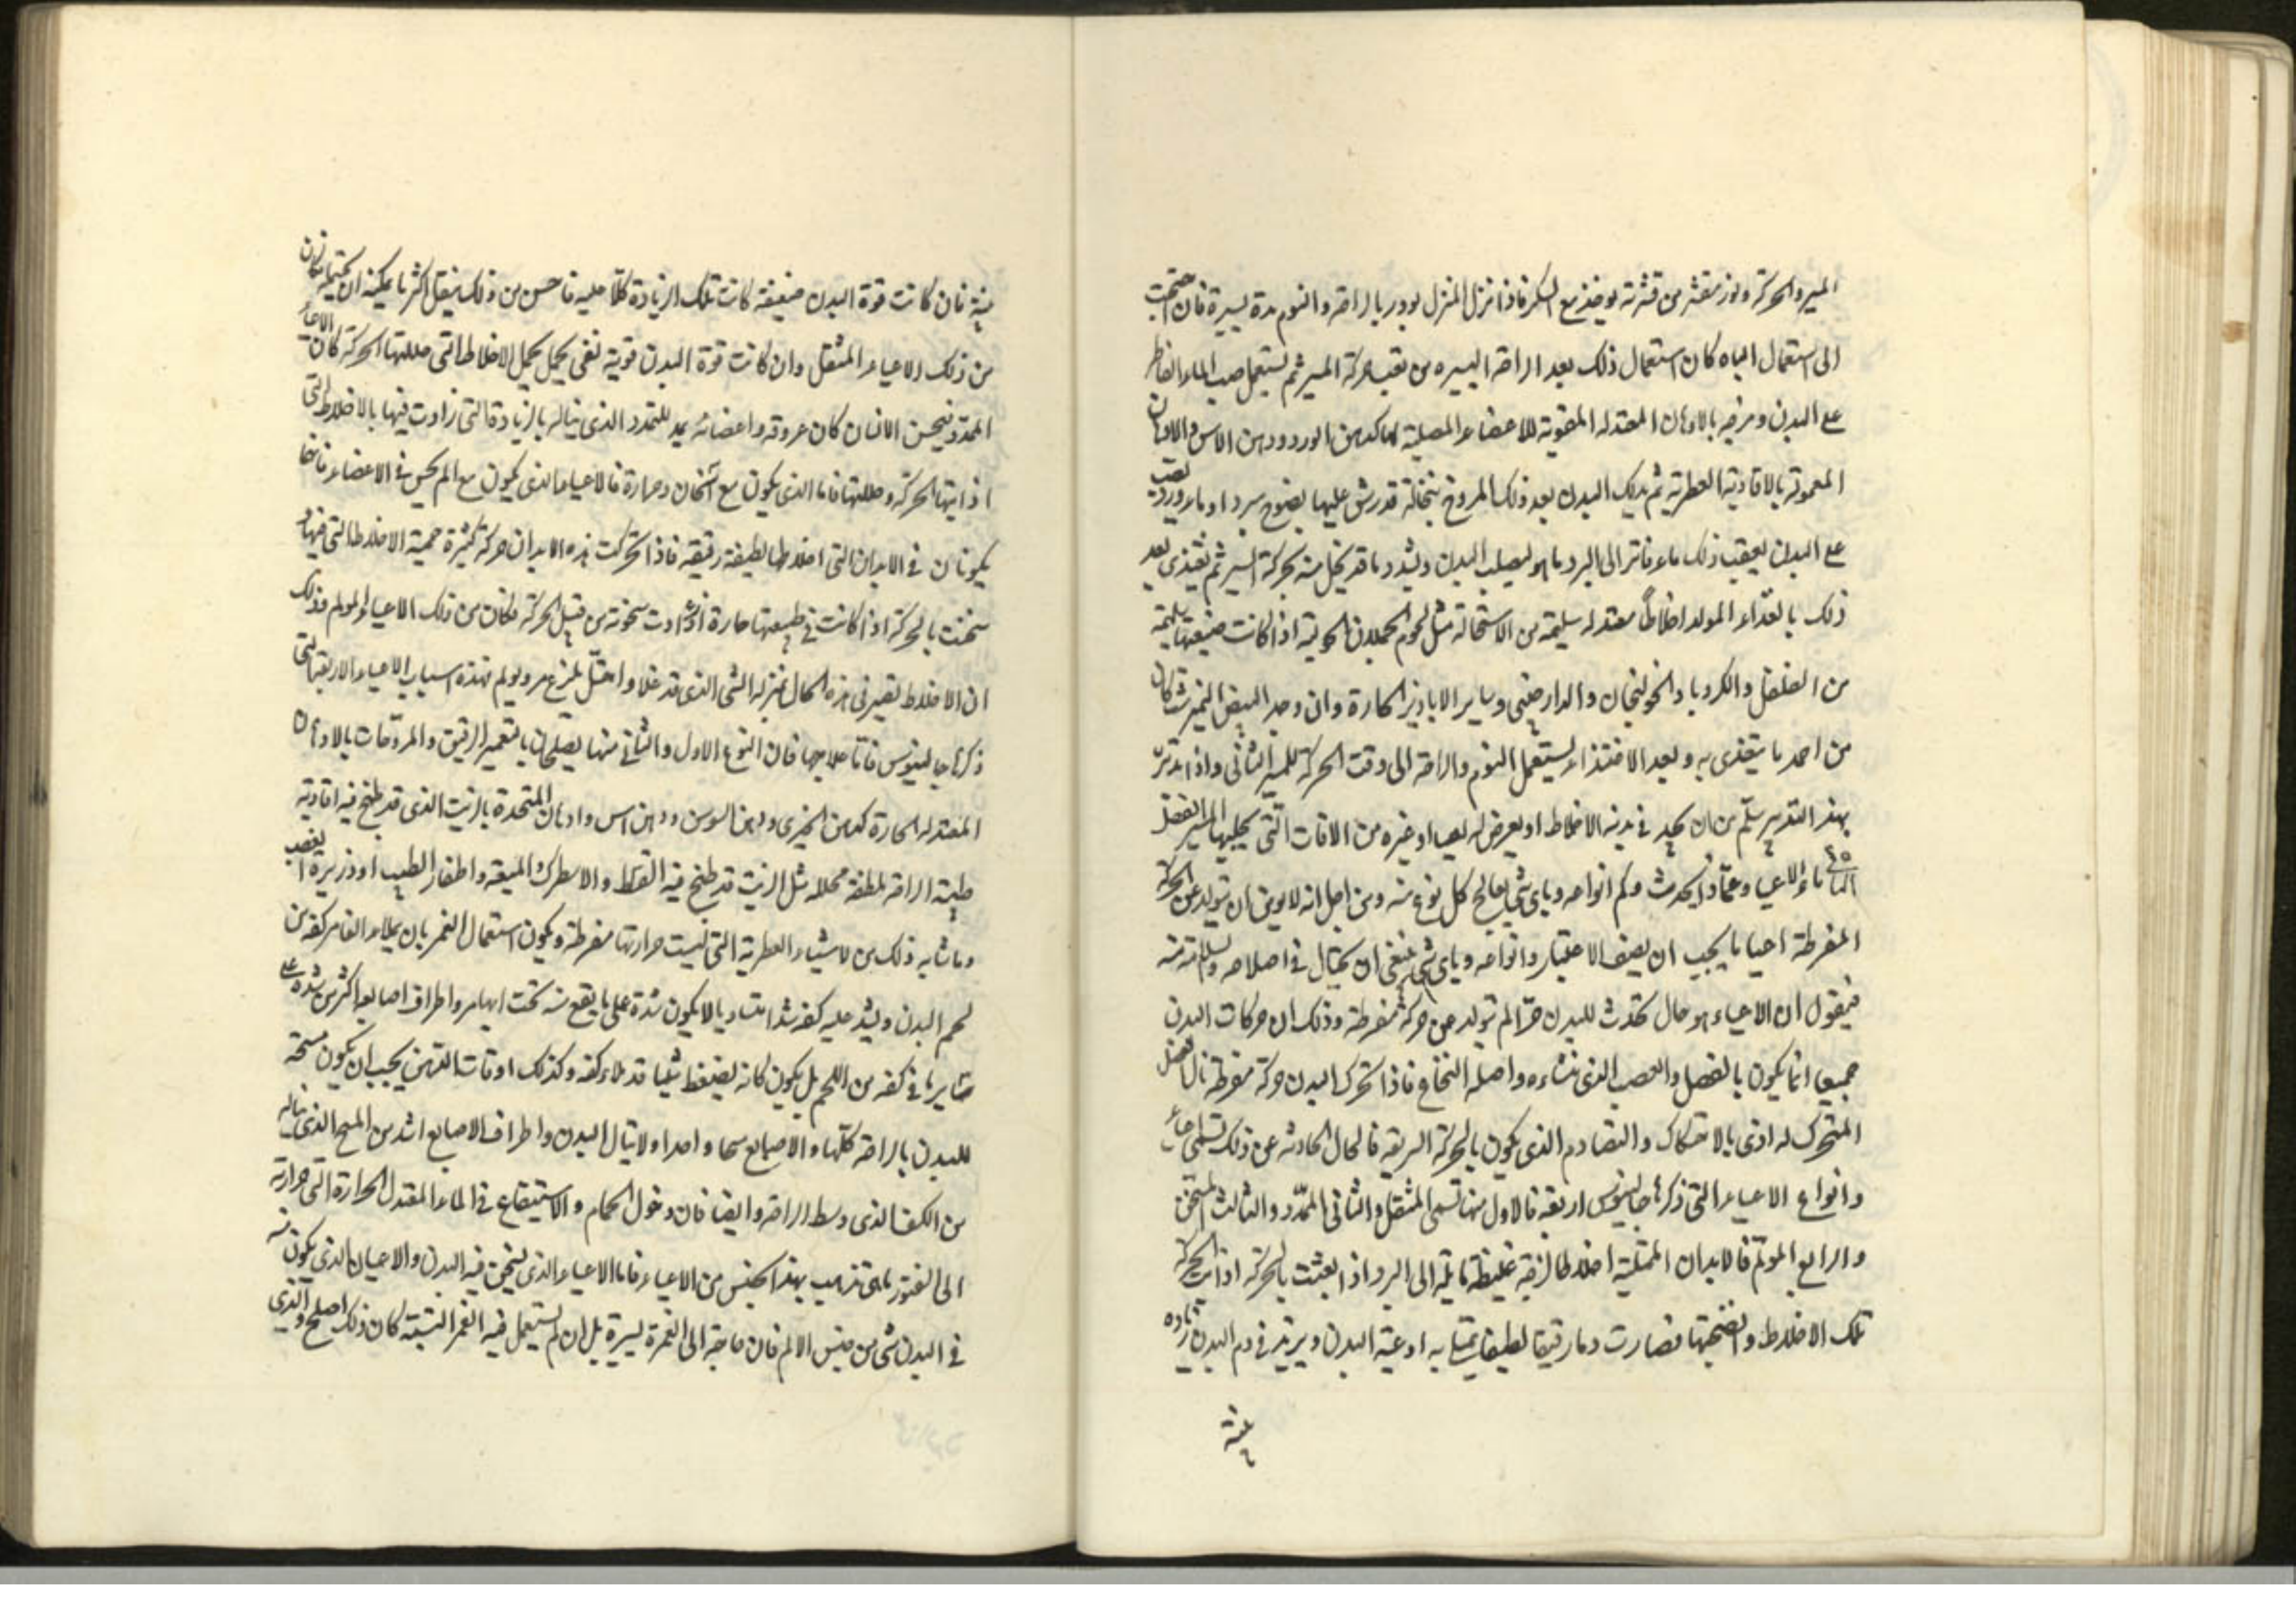 المسير والحركة ولوز مقشر من قشرته يوخذ مع السكر فاذا نزل المنزل بودر بالراحة والنوم مدة يسيرة فان احتجت
الى استعمال الباه كان استعمال ذلك بعد الراحة اليسيره من تعب حركة المسير ثم يستعمل صب الماء الفاتر
على البدن ومرخه بالادهان المعتدله المقوية للاعضاء المصلبة لها كدهن الورد ودهن الاس والادهان
المعمولة بالافاويه العطرية ثم يدلك البدن بعد ذلك المروخ بنخالة قد رش عليها نضوح مبرد او ماء ورد يصب
على البدن بعقب ذلك ماء فاتر الى البرد ما هو ليصلب البدن ويشدد ما قد تخلل منه بحركة السير ثم يغتذى بعد
ذلك بالغذاء المولد اخلاطا معتدله سليمة من الاستحالة مثل لحوم الحملان الحولية اذا كانت صنيعتها سليمة
من الفلفل والكرويا والخولنجان والدارصينى وساير الابازير الحارة وان وجد البيض النمبرشت كان
من احمد ما يتغذى به وبعد الاغتذاء يستعمل النوم والراحة الى وقت الحركة للمسير الثانى واذا تدبر
بهذا التدبير سلم من ان يحد فى بدنه الاخلاط او يعرض له اعيا او غيره من الافات التى يجلبها المسير الفصل
ما هو الاعيا وعماذا يحدث وكم انواعه وباى شى يعالج كل نوع منه ومن اجل انه لا يومن ان يتولد عن الحركة
المفرطة احيانا يجب ان يصف الاعياء وانواعه وباى شى ينبغى ان يحتال فى اصلاحه والسلامة منه
فيقول ان الاعياء هو حال تحدث للبدن الم تتولد عن حركة مفرطة وذلك ان حركات البدن
جميعا انما يكون بالعضل والعصب الذى منشاءه واصله النخاع فاذا تحرك البدن حركة مفرطة نال العضل
المتحرك له اذى بالاحتكاك والتصادم الذى يكون بالحركة السريعة فالحال الحادثه عن ذلك تسمى اعياء
وانواع الاعياء التى ذكرها جالينوس اربعة فالاول منها تسمى المثقل والثانى الممدد والثالث المسخن
والرابع المولم فالابدان الممتلية اخلاطا لزجة غليظة مايلة الى البرد اذا تعبت بالحركة اذابت الحركة
تلك الاخلاط وانضجتها فصارت دما رقيقا لطيفا يمتلى به اوعية البدن ويزيد فى دم البدن زيادة
بينة
بينة فان كانت قوة البدن ضعيفة كانت تلك الزيادة كلا عليه فاحس من ذلك بثقل اكثر ما يمكنه ان يحتمله فكان
من ذلك الاعياء المثقل وان كانت قوة البدن قوية تفى بحمل الاخلاط التى حللتها الحركة كان الاعياء
الممدد فيحس الانسان كان عروقه واعضائه يمدد للتمدد الذى يناله بالزيادة التى زادت فيها بالاخلاط التى
اذابتها الحركة وحللتها فاما الذى يكون مع اسخان وحرارة فالاعيا والذى يكون مع الم يحس فى الاعضاء فانهما
يكونان فى الابدان التى اخلاطها لطيفة رقيقة فاذا تحركت هذه الابدان حركة كثيرة حميت الاخلاط التى فيها
سخنت بالحركة اذا كانت فى طبيعتها حارة فازدادت سخونة من قبل الحركة فكان من ذلك الاعياء المولم وذلك
ان الاخلاط تصير فى هذه الحال بمنزلة الشى الذى قد غلا فيلذع ويولم فهذه اسباب الاعياء الاربعة التى
ذكرها جالينوس فاما علاجها فان النوع الاول والثانى منها يصلحان بالتغميز الرقيق والمروخات بالادهان
المعتدله الحارة كدهن الخيرى ودهن السوسن ودهن اس وادهان المتخذة بالزيت الذى قد طبخ فيه افاوية
طيبة الرائحة ملطفة محلله مثل الزيت قد طبخ فيه القسط والاسطرك والميعة واظفار الطيب او ذريرة القصب
وما شابه ذلك من الاشياء العطرية التى ليست حرارتها مفرطة ويكون استعمال الغمز بان يملاء الغامز كفه من
لحم البدن ويشد عليه كفه شدا متساويا لا يكون شدة على ما يقع منه تحت ابهامه واطراف اصابعه اكثر من شده على
سايرها فى كفه من اللحم بل يكون كانه يضغط شيا قد ملاء كفه وكذلك اوقات الدهن يجب ان يكون مسحه
للبدن بالراحة كلها والاصابع مسحا واحدا ولا ينال البدن واطراف الاصابع اشد من المسح الذى يناله
من الكف الذى وسط الراحة وايضا فان دخول الحمام والاستنقاع فى الماء المعتدل الحرارة التى حرارته
الى الفتور ما هى تذهب بهذا الجنس من الاعياء فاما الاعياء الذى يسخن فيه البدن والاعياء الذى يكون منه
فى البدن شى من جنس الالم فان حاجته الى الغمزة يسيرة بل ان لم يستعمل فيه الغمز البتة كان ذلك اصلح والذى